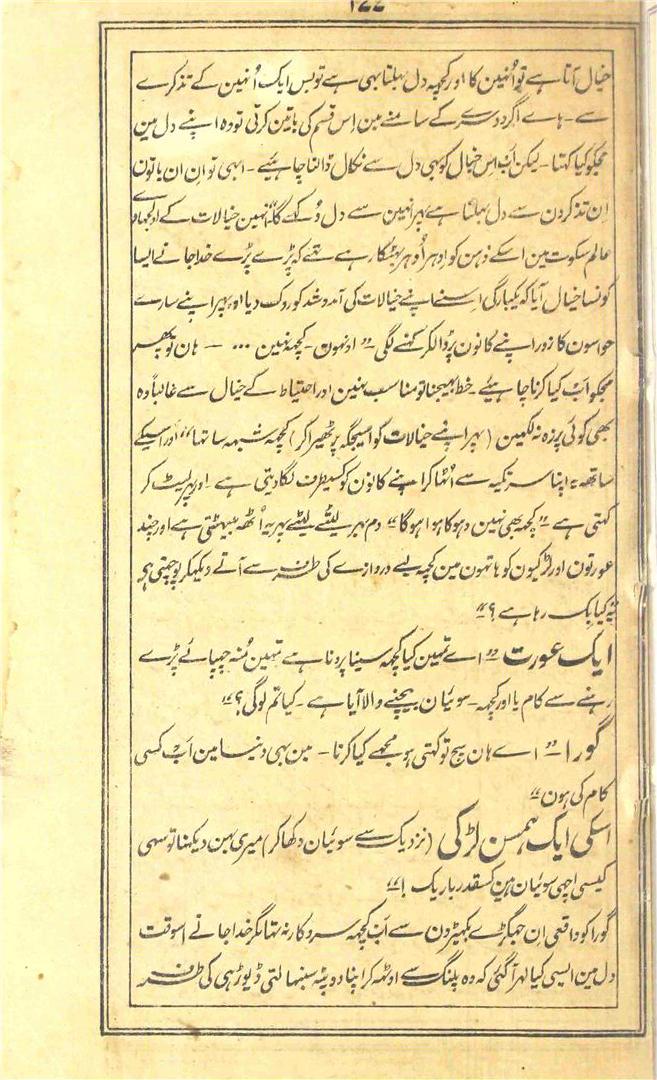 ۱۲۲
خیال آتا ہے تو اُنہین کا اور کچہہ دل بہلتا بہی ہے تو بس ایک اُنہین کے تذکرے
سے۔ ہاے اگر دوسرے کے سامنے مین اِس قسم کی باتین کرتی تو وہ اپنے دل مین
مجکو کیا کہتا۔ لیکن اَب اِس خیال کو بہی دل سے نکال ڈالنا چاہئیے۔ ابہی تو اِن ان باتون
اِن تذکرون سے دل بہلتا ہے پہر انہین سے دل دُکہے گا“ انہین خیالات کے اولجہاوے
عالم سکوت مین اسکے ذہن کو اِدہر اُدہر بہٹکا رہے تہے کہ پڑے پڑے خدا جانے ایسا
کونسا خیال آیا کہ یکبارگی اسنے اپنے خیالات کی آمد و شد کو روک دیا اور پہر اپنے سارے
حواسون کا زور اپنے کانون پر ڈالکر کہنے لگی۔ ”اونہون۔ کچہہ نہین ... — ہان تو پھر
مجکو اَب کیا کرنا چاہیئے۔ خط بہیجنا تو مناسب نہین اور احتیاط کے خیال سے غالباً وہ
بھی کوئی پرزہ نہ لکہین (پہر اپنے خیالات کو اسیجگہ پر ٹھیرا کر) کچہہ شبہہ سا تہا“ اور اسکے
ساتہہ یہ اپنا سر تکیہ سے اُٹہا کر اپنے کانون کو کسیطرف لگا دیتی ہے۔ اور پہر لیٹ کر
کہتی ہے ”کچہہ بھی نہین دہوکا ہوا ہوگا“ دم بہر لیٹے لیٹے پہر یہ اُٹہہ بیٹہتی ہے اور چند
عورتون اور لڑکیون کو ہاتہون مین کچہہ لیے دروازے کی طرف سے آتے دیکہکر پوچہتی ہی
”یہ کیا بِک رہا ہے؟“
ایک عورت ”اے تمہین کیا کچہہ سینا پرونا ہے تمہین مُنہ چہپائے پڑے
رہنے سے کام یا اور کچہہ۔ سوئیان بیچنے والا آیا ہے۔ کیا تم لوگی؟“
گورا ”اے ہان سچ تو کہتی ہو مجھے کیا کرنا۔ مین بہی دنیا مین اَب کسی
کام کی ہون“
اسکی ایک ہمسن لڑکی (نزدیک سے سوئیان دکہا کر) میری بہن دیکہنا تو سہی
کیسی اچہی سوئیان ہین کسقدر باریک!“
گورا کو واقعی اِن جہگڑے بکہیڑون سے اَب کچہہ سروکار نہ تہا مگر خدا جانے اسوقت
دل مین ایسی کیا لہر آگئی کہ وہ پلنگ سے اوٹہہ کر اپنا دوپٹہ سنبہالتی ڈیوڑہی کی طرف